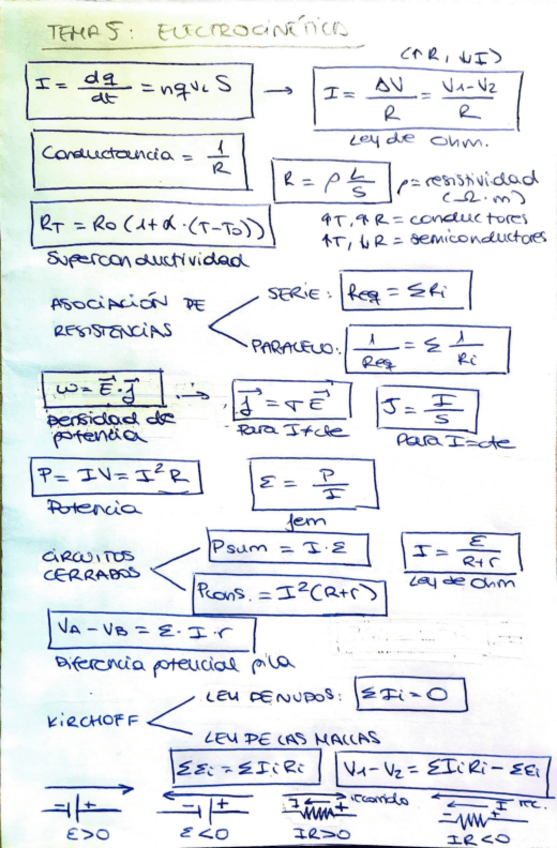 TEMA 5: ELECTROCINÉTICA
(↑R, ↓I)
I = dq/dt = nqvc S → I = ΔV/R = V1-V2/R
Ley de Ohm.
Conductancia = 1/R
R = ρ L/S ρ = resistividad (Ω·m)
RT = R0 (1+α·(T-T0))
↑T, ↑R = conductores
↑T, ↓R = semiconductores
Superconductividad
ASOCIACIÓN DE RESISTENCIAS
SERIE: Req = ΣRi
PARALELO: 1/Req = Σ 1/Ri
ω = E⃗·j⃗ → j⃗ = σE⃗ J = I/S
Densidad de potencia
Para I≠cte
Para I=cte
P = IV = I²R
Potencia
Ɛ = P/I
fem
CIRCUITOS CERRADOS
Psum = I·Ɛ
Pcons. = I²(R+r)
I = Ɛ/R+r
Ley de Ohm
VA - VB = Ɛ·I·r
Diferencia potencial pila
KIRCHOFF
LEY DE NUDOS: ΣIi = 0
LEY DE LAS MALLAS
ΣƐi = ΣIiRi V1-V2 = ΣIiRi - ΣƐi
- + - + I recorrido + I rec. -
Ɛ>0 Ɛ<0 IR>0 IR<0